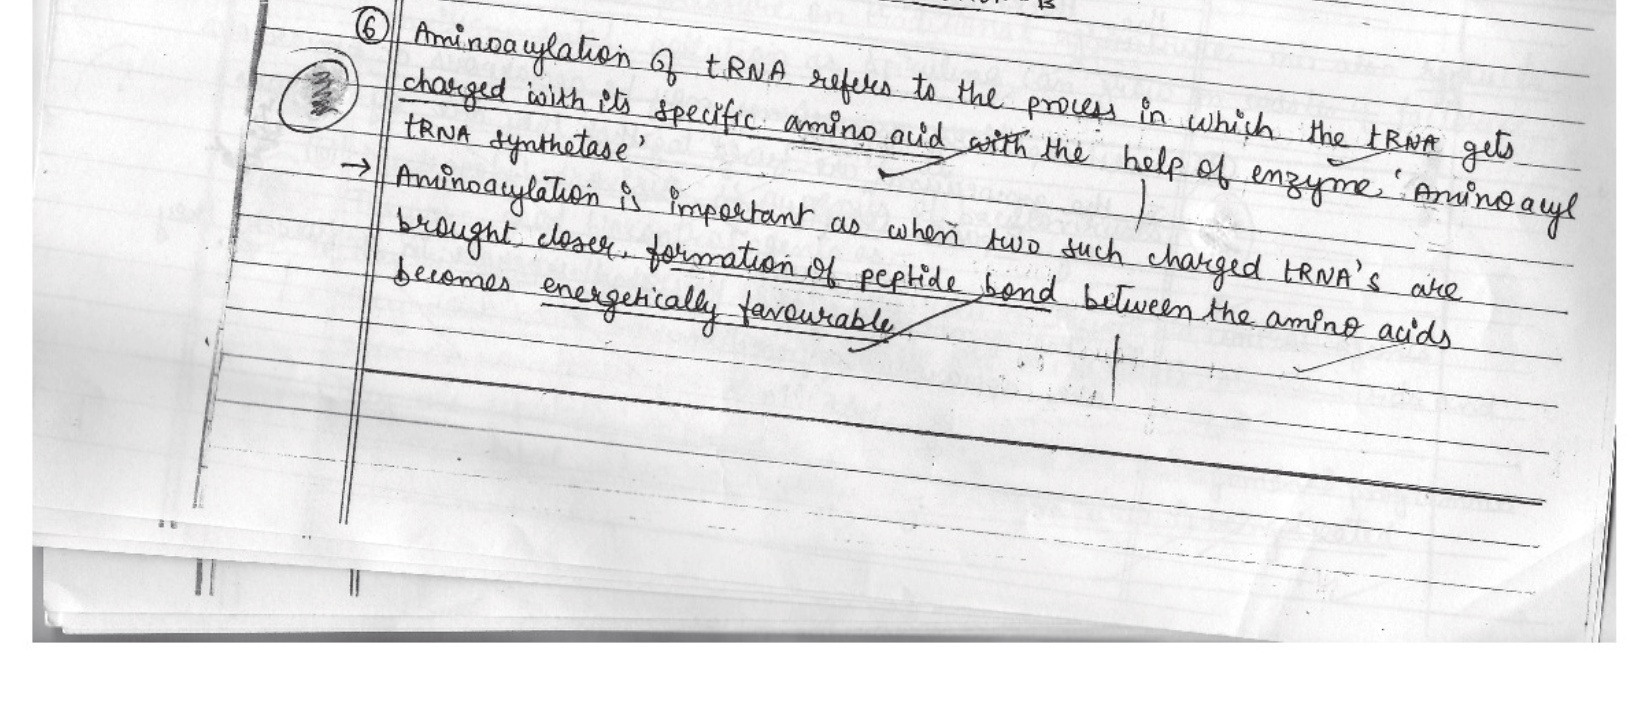 ⑥ Aminoacylation of tRNA refers to the process in which the tRNA gets
charged with its specific amino acid with the help of enzyme, 'Aminoacyl
tRNA synthetase'
→ Aminoacylation is important as when two such charged tRNA's are
brought closer, formation of peptide bond between the amino acids
becomes energetically favourable.